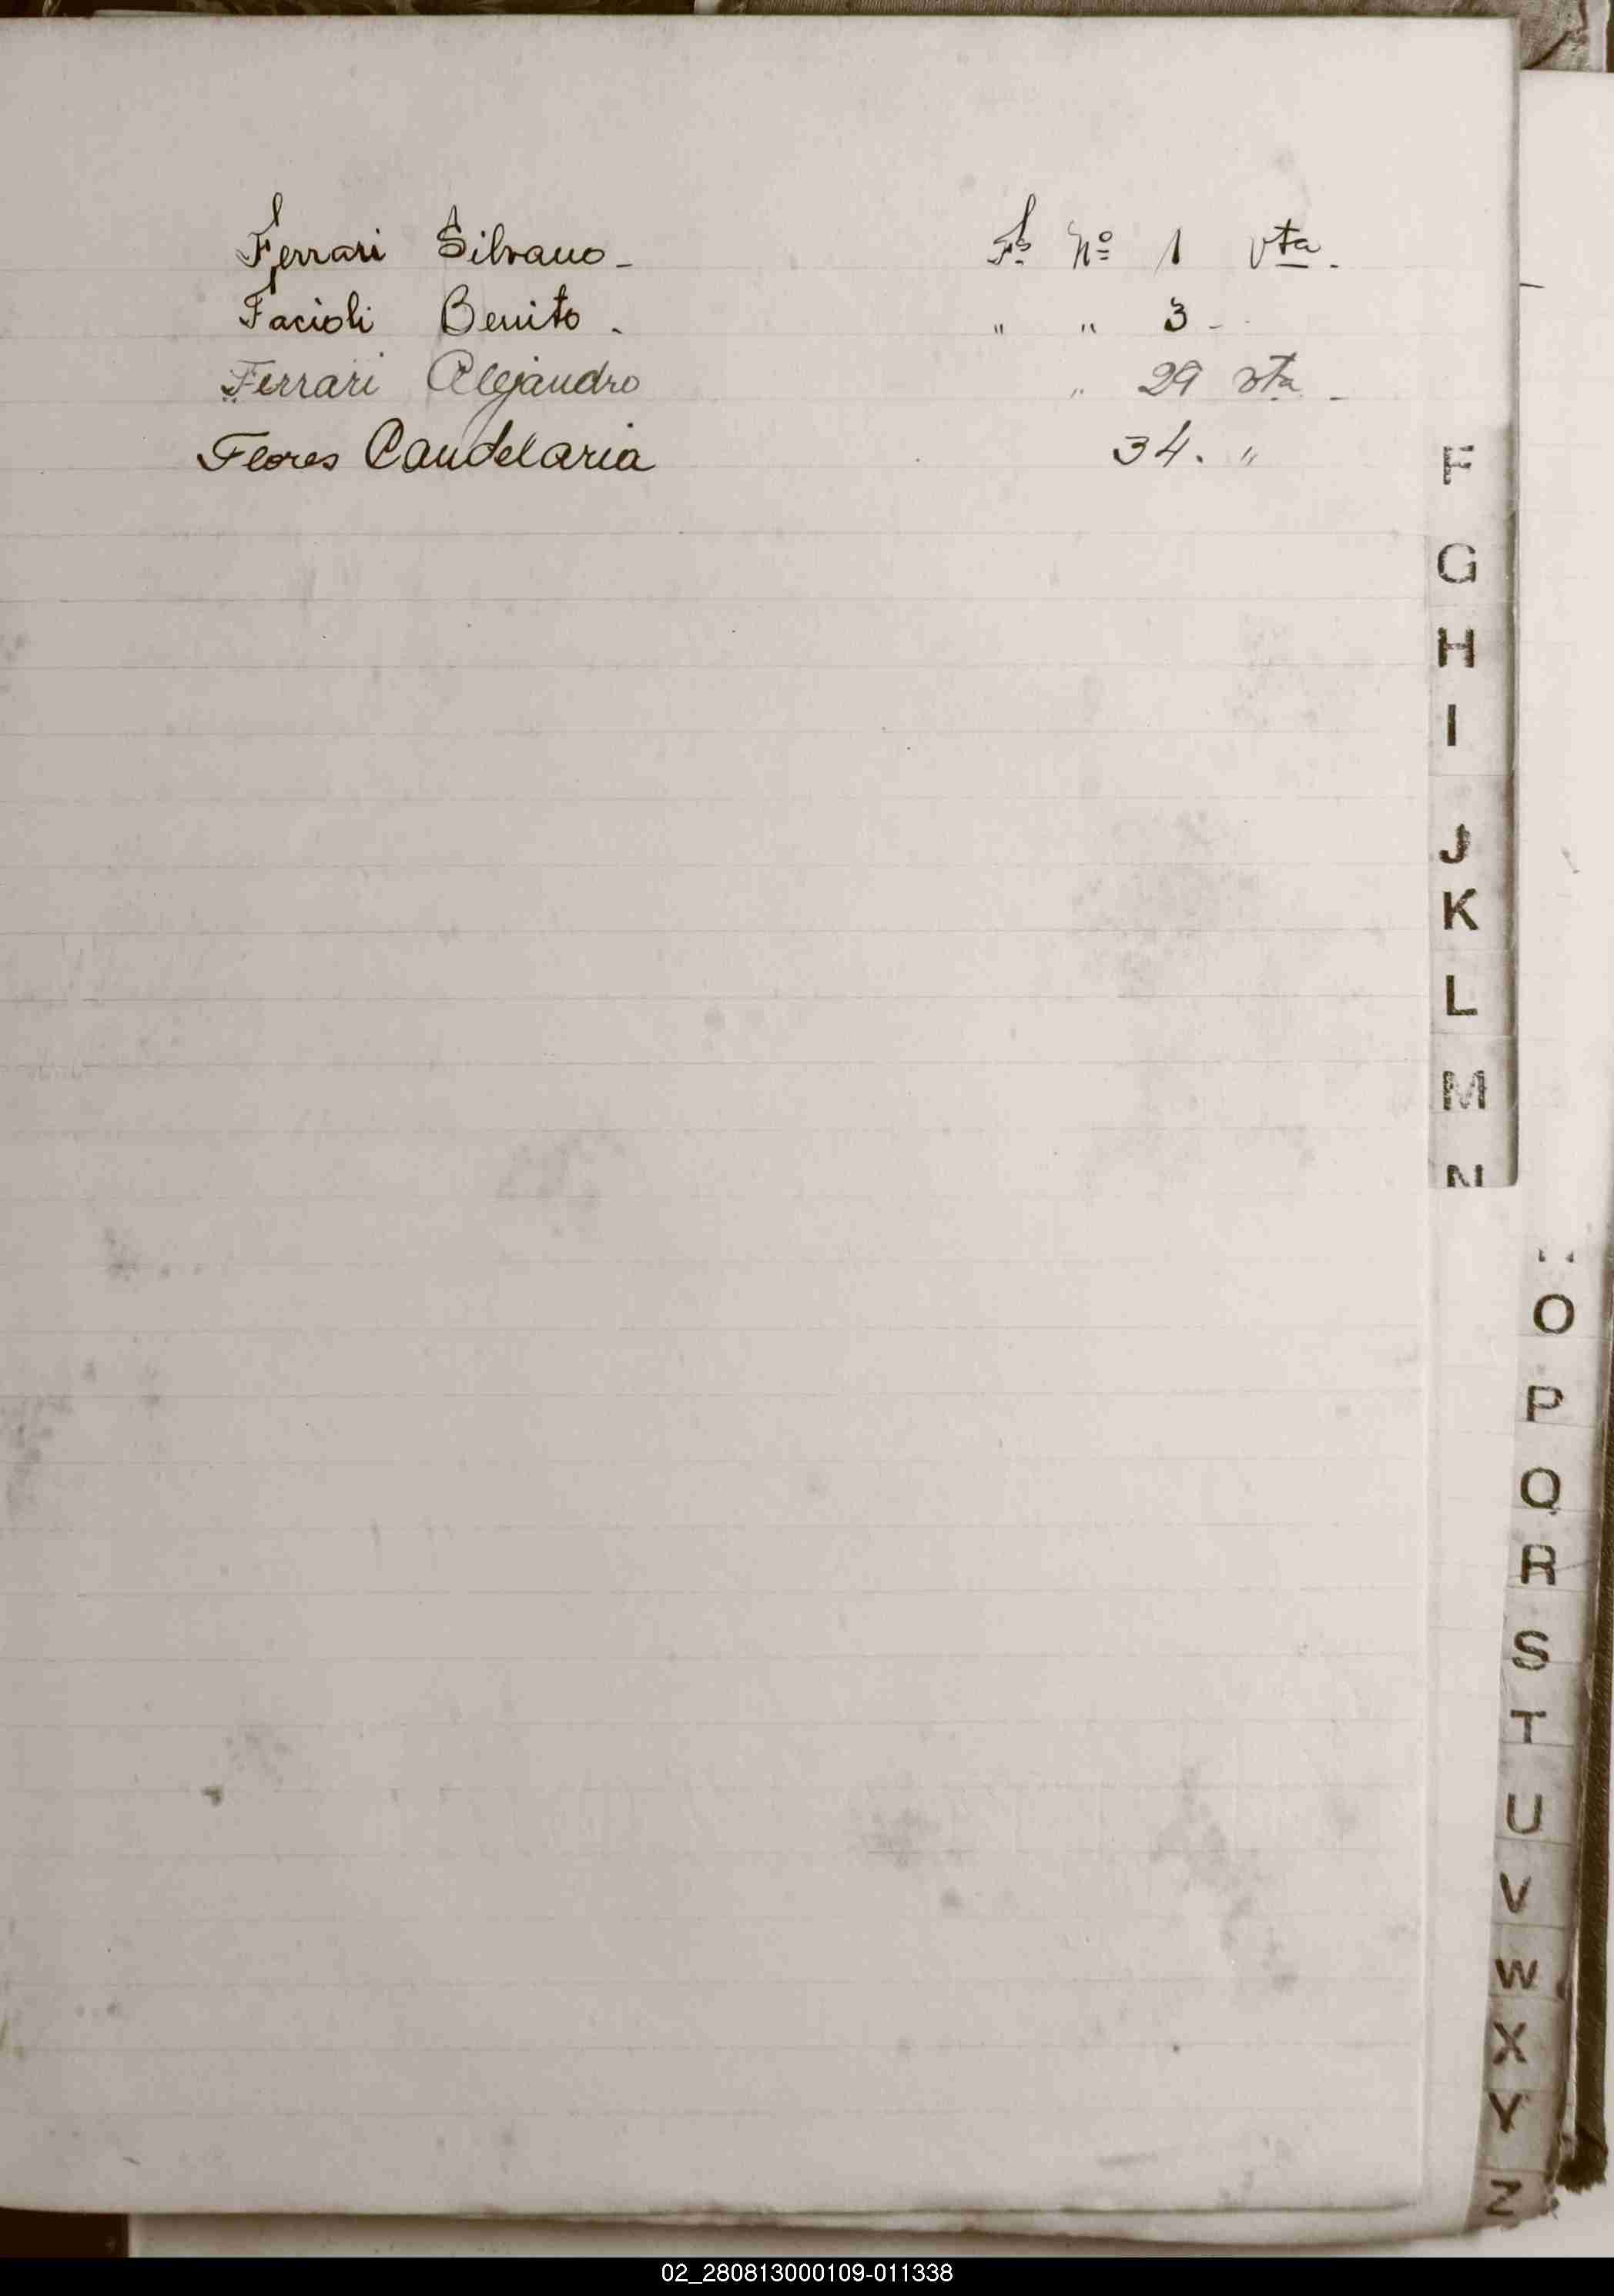 Ferrari Silvano - Fs. Nº 1 vta.
Facioli Benito . " " 3 -
Ferrari Alejandro " 29 vta -
Flores Candelaria 34. "
F
G
H
I
J
K
L
M
N
O
P
Q
R
S
T
U
V
W
X
Y
Z
02_280813000109-011338